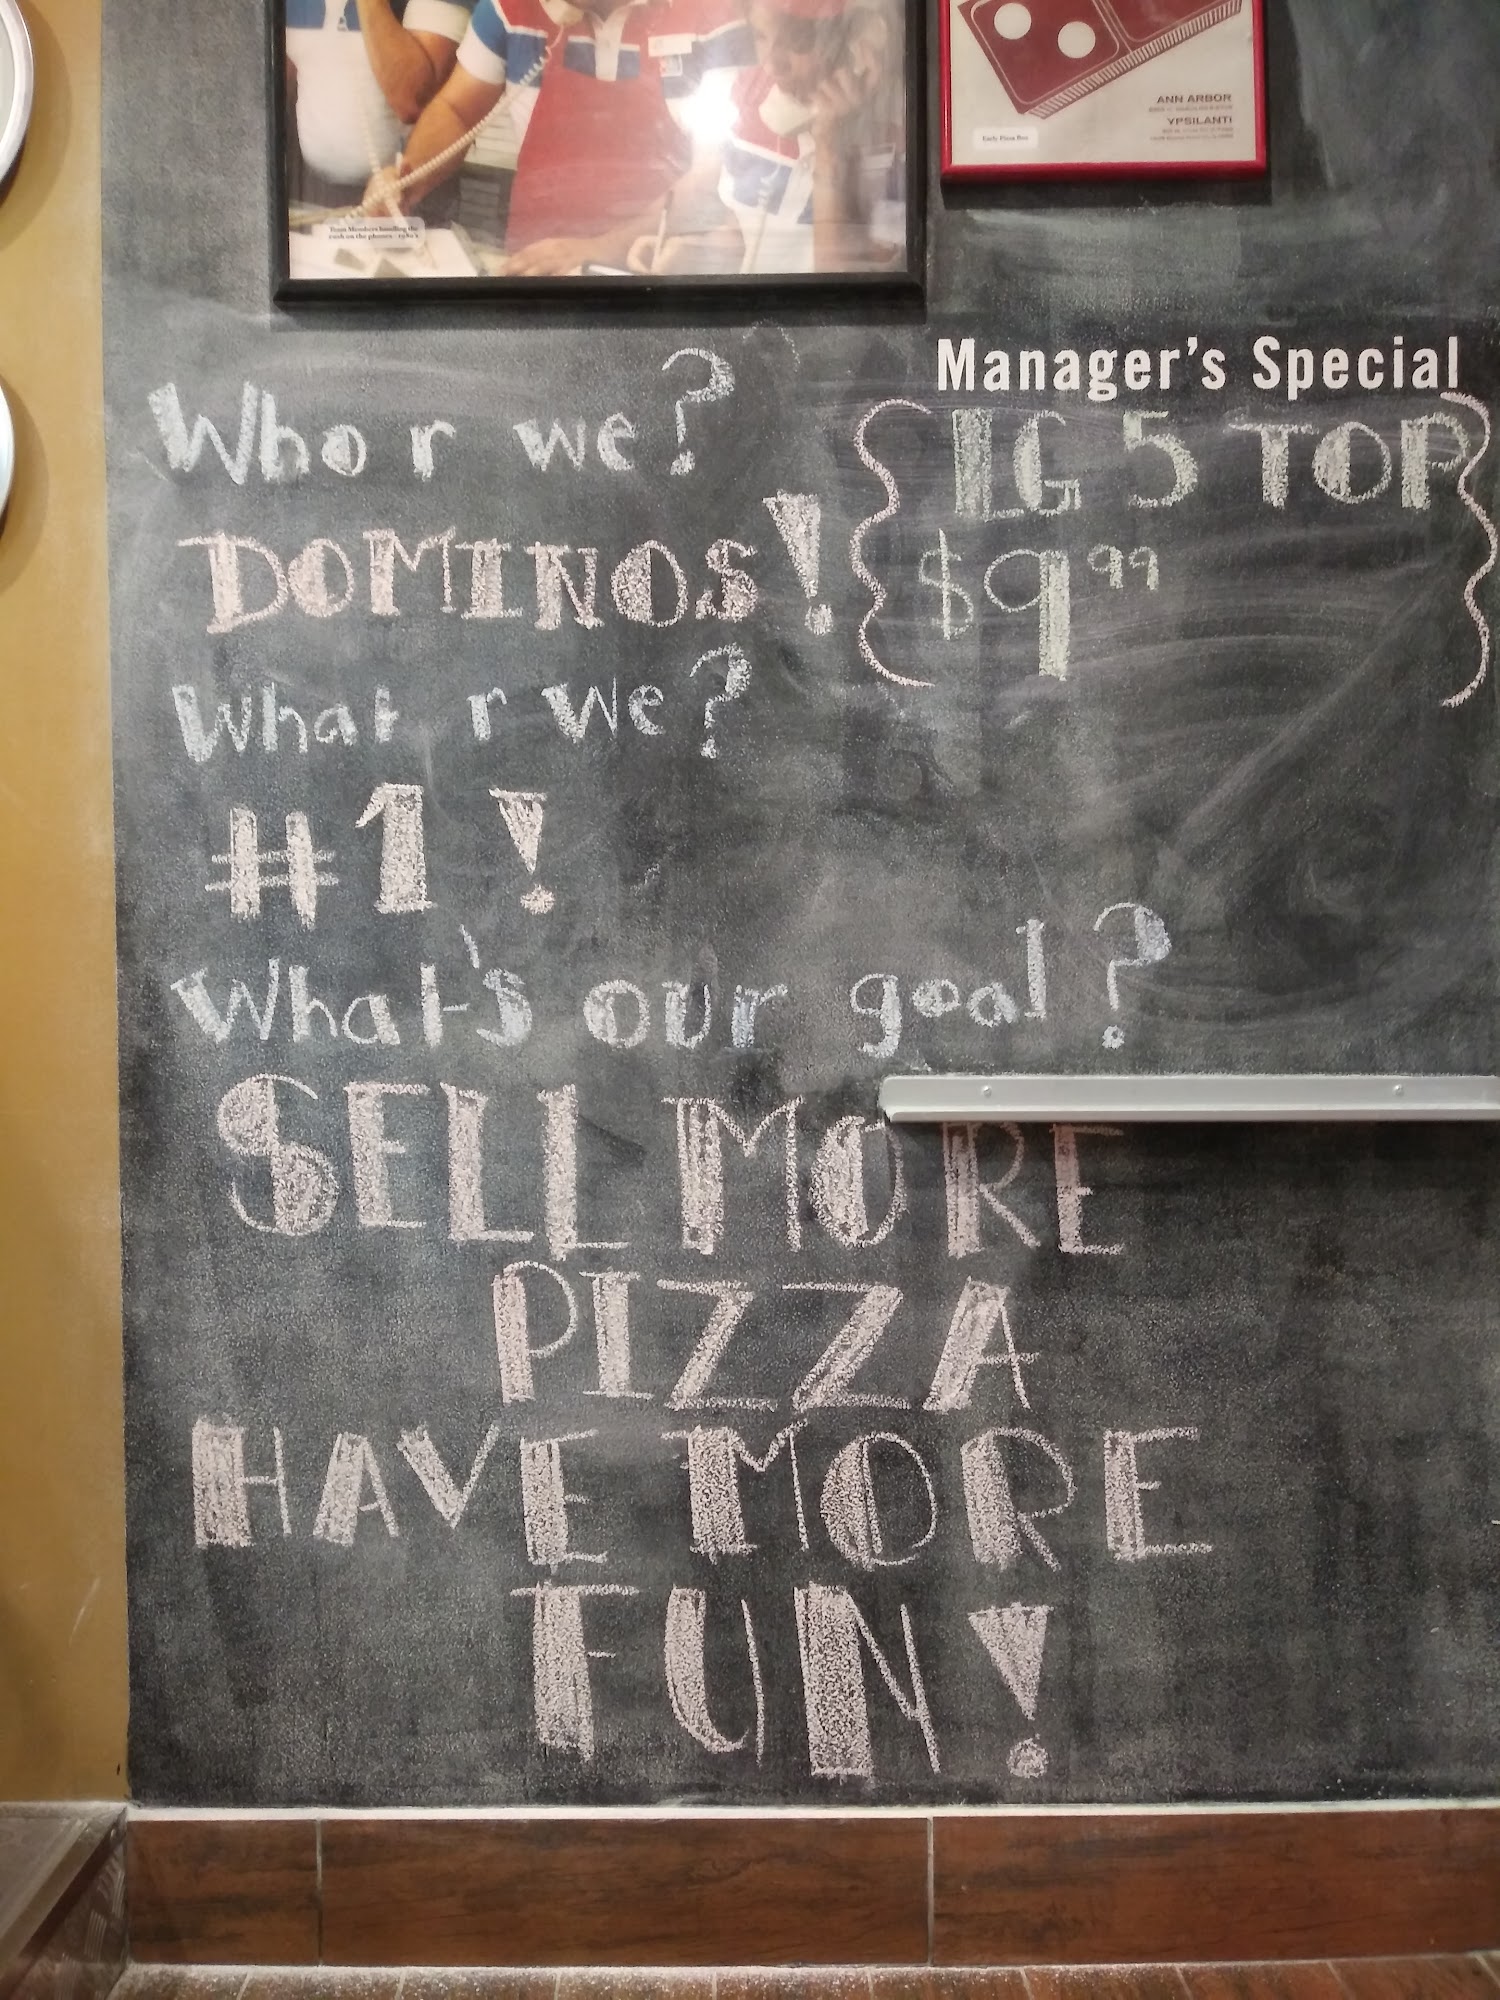 Team Members handling the
rush on the phones - 1980's
Early Pizza Box
ANN ARBOR
YPSILANTI
Manager's Special
LG 5 TOP
$9.99
Who r we?
DOMINOS!
What r we?
#1!
What's our goal?
SELL MORE
PIZZA
HAVE MORE
FUN!